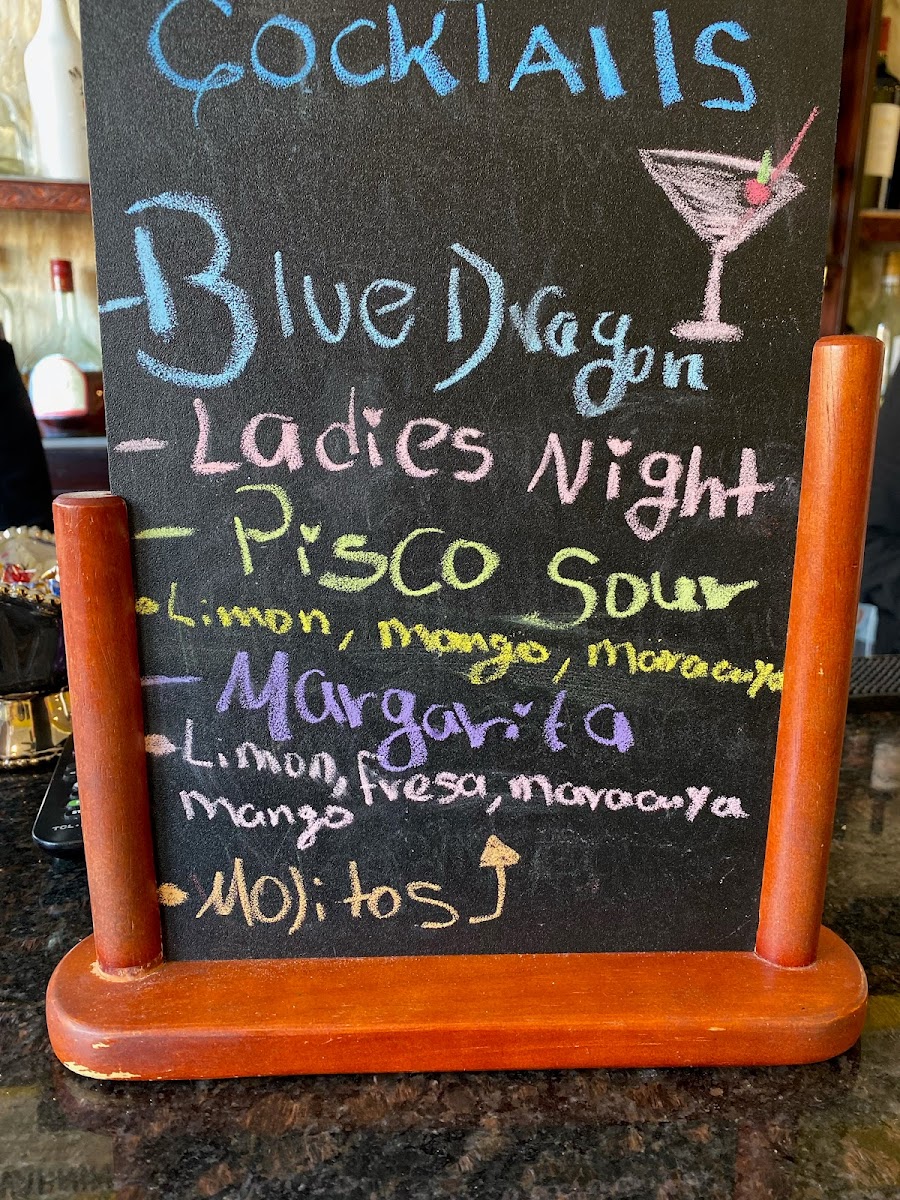 Cocktails
- Blue Dragon
- Ladies Night
- Pisco Sour
• Limon, mango, maracuya
- Margarita
• Limon, fresa, maracuya
mango
• Mojitos
TCL